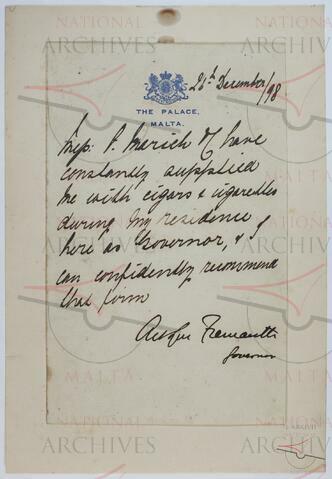 26th December/98
THE PALACE,
MALTA.
Mess: P. Marich & Co have
constantly supplied
me with cigars & cigarettes
during my residence
here as Governor, & I
can confidently recommend
that firm
Arthur Fremantle
Governor
NATIONAL
ARCHIVES
MALTA
NATIONAL
ARCHIVES